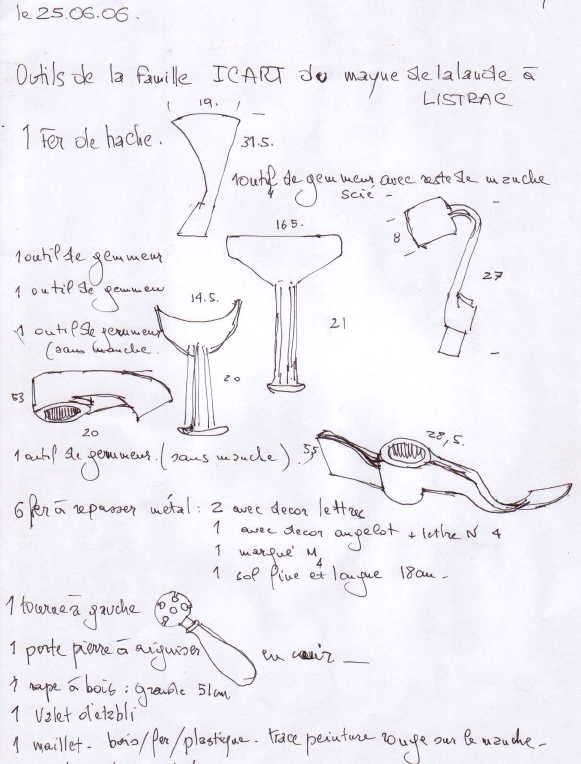 le 25.06.06.
Outils de la famille ICART du mayne de lalande à
LISTRAC
19.
1 Fer de hache.
31.5.
1 outil de gemmeur avec reste de manche
scié -
16.5.
8
27
1 outil de gemmeur
1 outil de gemmeur
14.5.
1 outil de gemmeur
(sans manche.
21
20
53
20
1 outil de gemmeur. (sans manche).
5,5
28,5.
6 fer à repasser métal : 2 avec decor lettre
1 avec decor angelot + lettre N 4
1 marqué M
4
1 et langue 18cm -
1 tourne à gauche
1 porte pierre à aiguiser
en cuir
1 rape à bois : grande 51cm
1 valet d'etabli
1 maillet - bois/fer/plastique. trace peinture rouge sur le manche -